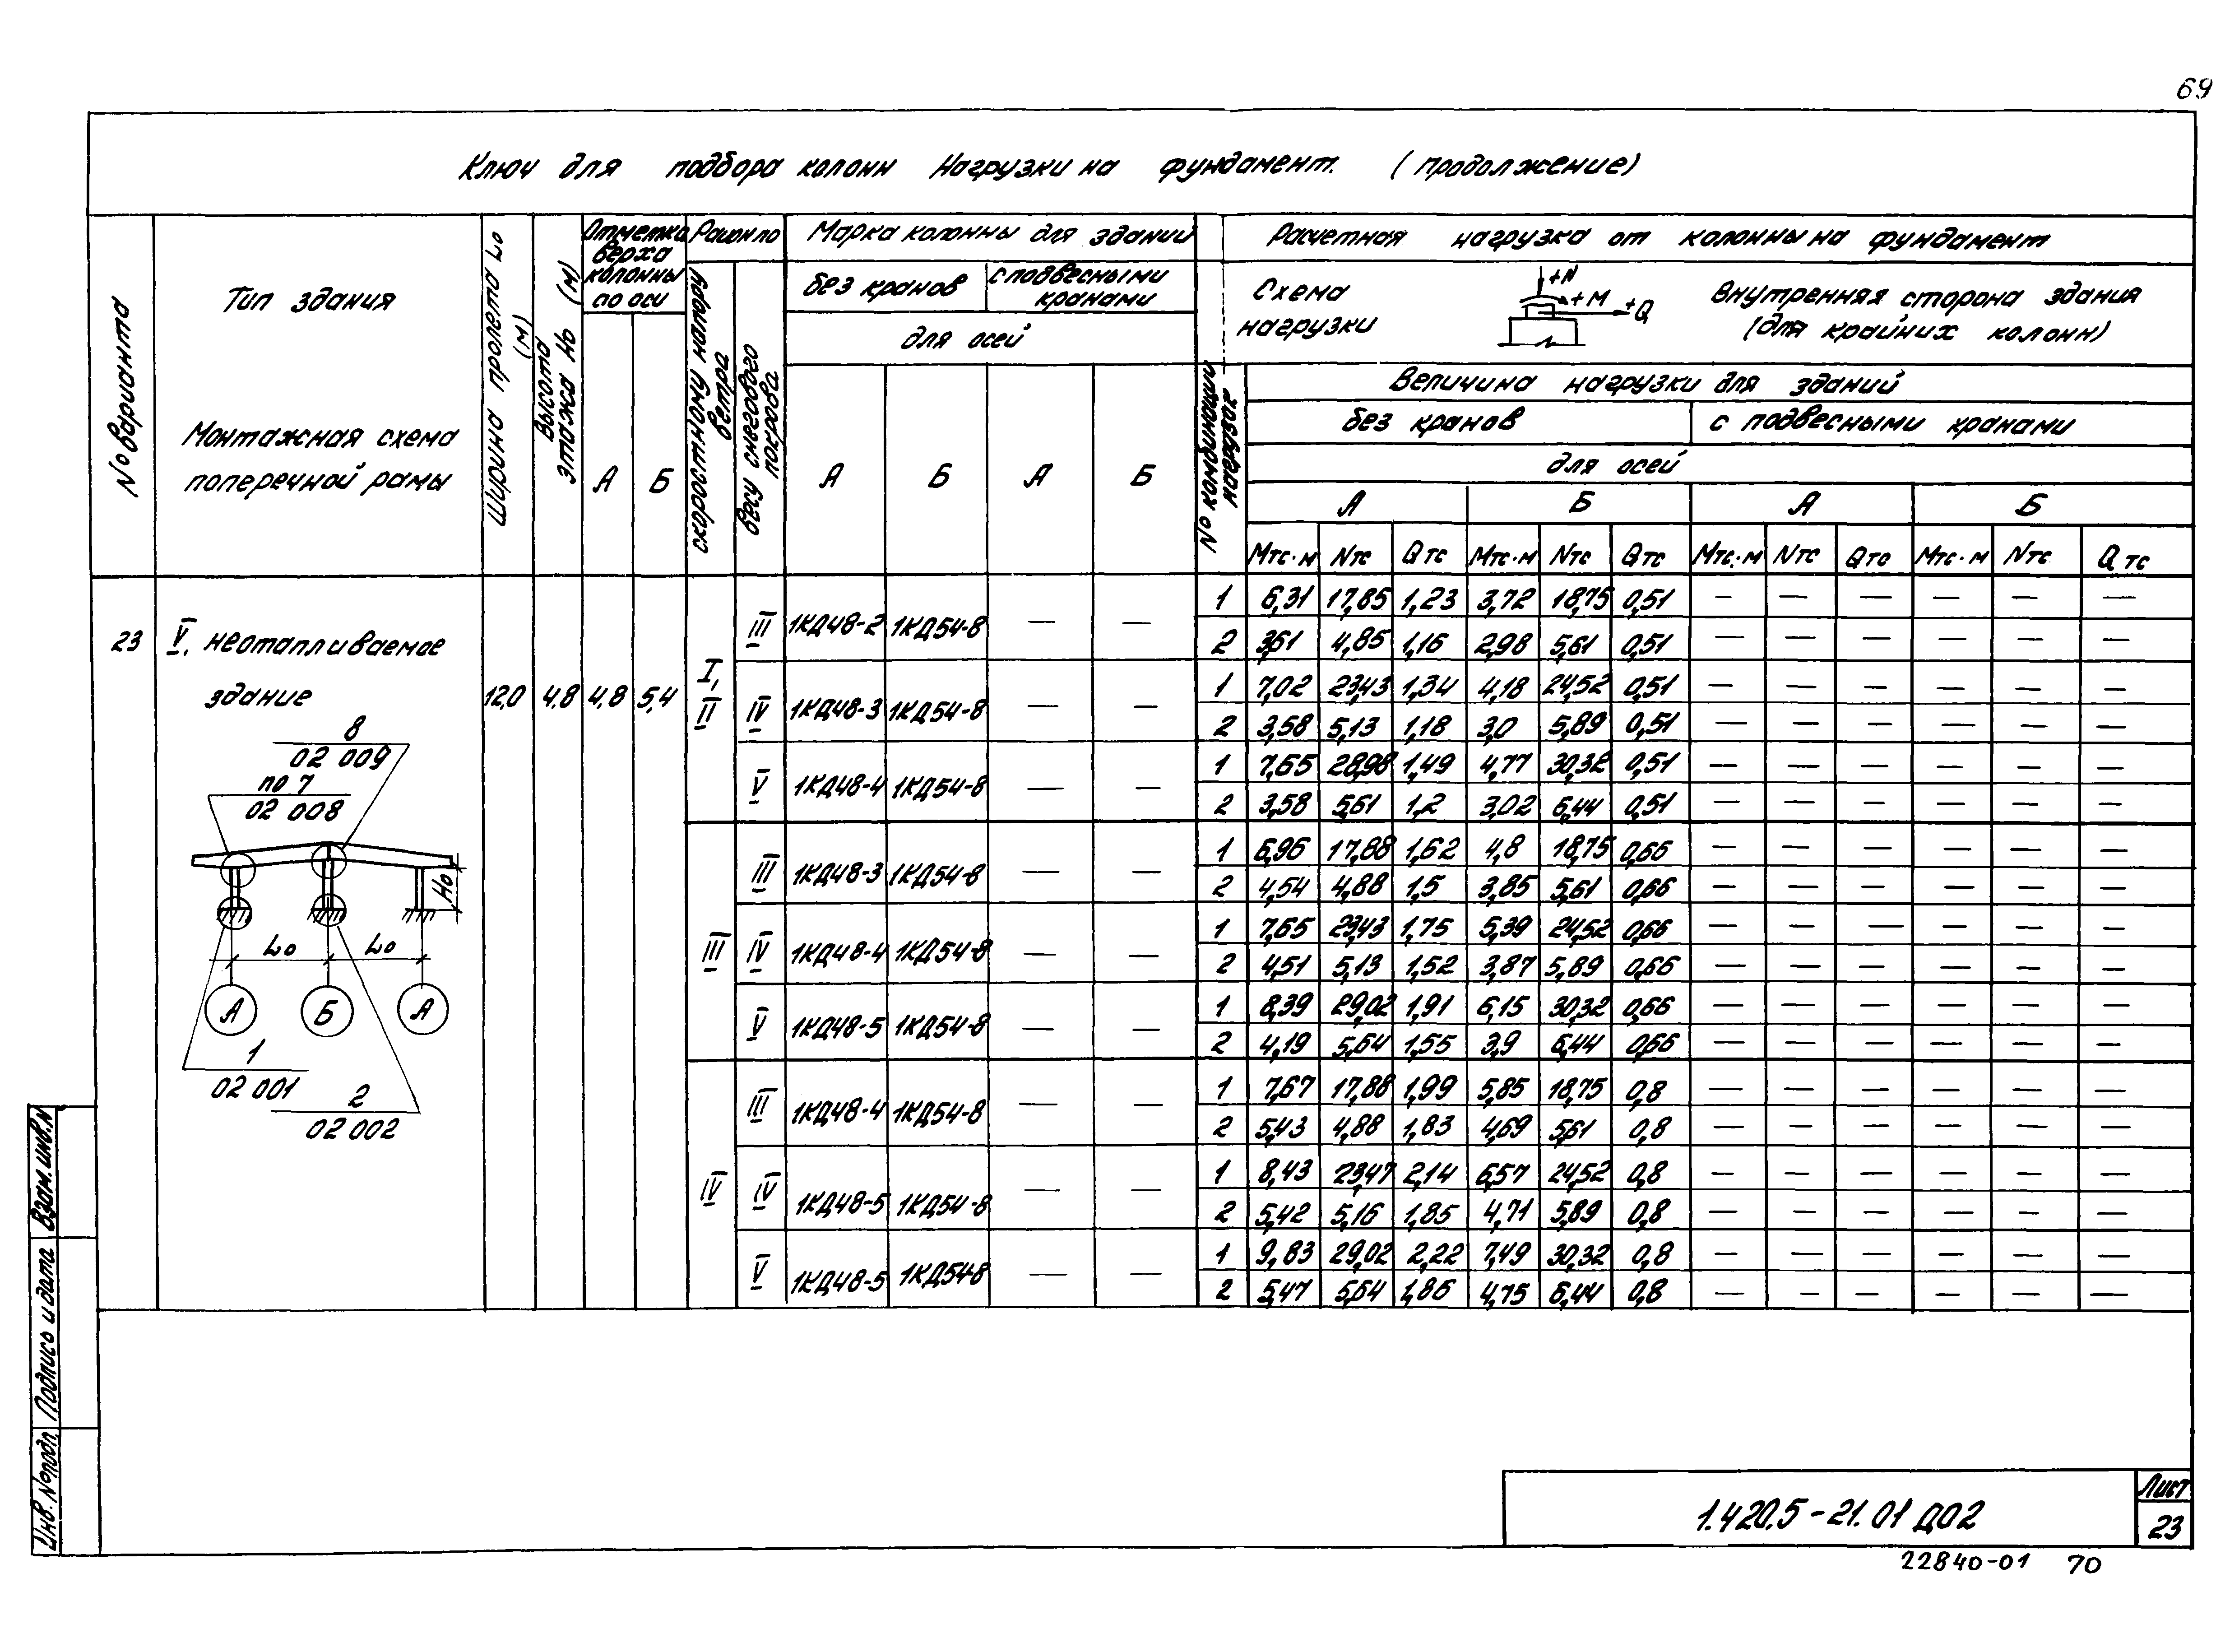 69
Ключ для подбора колонн Нагрузки на фундамент. (продолжение)
№ варианта
Тип здания
Монтажная схема
поперечной рамы
Ширина пролета Lо
(м)
Высота
этажа Hо (м)
Отметка
верха
колонны
по оси
А Б
Район по
скоростному напору
ветра
весу снегового
покрова
Марка колонны для зданий
без кранов
с подвесными
кранами
для осей
А Б А Б
№ комбинации
нагрузок
Расчетная нагрузка от колонны на фундамент
Схема
нагрузки
+N
+M
+Q
Внутренняя сторона здания
(для крайних колонн)
Величина нагрузки для зданий
без кранов с подвесными кранами
для осей
А Б А Б
Mтс·м Nтс Qтс Mтс·м Nтс Qтс Mтс·м Nтс Qтс Mтс·м Nтс Qтс
23 V. неотапливаемое
здание
12,0 4,8 4,8 5,4
I, II
III 1КД48-2 1КД54-8 — —
1 6,31 17,85 1,23 3,72 18,75 0,51 — — — — — —
2 3,61 4,85 1,16 2,98 5,61 0,51 — — — — — —
IV 1КД48-3 1КД54-8 — —
1 7,02 23,43 1,34 4,18 24,52 0,51 — — — — — —
2 3,58 5,13 1,18 3,0 5,89 0,51 — — — — — —
V 1КД48-4 1КД54-8 — —
1 7,65 28,98 1,49 4,77 30,32 0,51 — — — — — —
2 3,58 5,61 1,2 3,02 6,44 0,51 — — — — — —
III
III 1КД48-3 1КД54-8 — —
1 6,96 17,88 1,62 4,8 18,75 0,66 — — — — — —
2 4,54 4,88 1,5 3,85 5,61 0,66 — — — — — —
IV 1КД48-4 1КД54-8 — —
1 7,65 23,43 1,75 5,39 24,52 0,66 — — — — — —
2 4,51 5,13 1,52 3,87 5,89 0,66 — — — — — —
V 1КД48-5 1КД54-8 — —
1 8,39 29,02 1,91 6,15 30,32 0,66 — — — — — —
2 4,19 5,64 1,55 3,9 6,44 0,66 — — — — — —
IV
III 1КД48-4 1КД54-8 — —
1 7,67 17,88 1,99 5,85 18,75 0,8 — — — — — —
2 5,43 4,88 1,83 4,69 5,61 0,8 — — — — — —
IV 1КД48-5 1КД54-8 — —
1 8,43 23,47 2,14 6,57 24,52 0,8 — — — — — —
2 5,42 5,16 1,85 4,71 5,89 0,8 — — — — — —
V 1КД48-5 1КД54-8 — —
1 9,83 29,02 2,22 7,49 30,32 0,8 — — — — — —
2 5,47 5,64 1,86 4,75 6,44 0,8 — — — — — —
8
02 009
по 7
02 008
Hо
Lо Lо
А Б А
1
02 001
2
02 002
Взам. инв. N
Подпись и дата
Инв. № подл.
1.420.5-21.01 Д02
Лист
23
22840-01 70